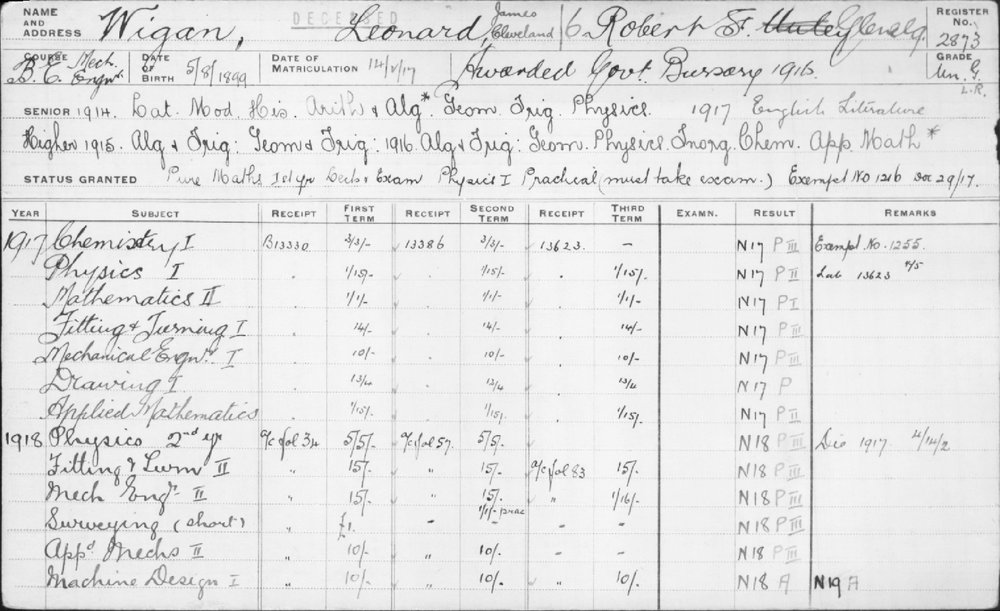 DECEASED
NAME AND ADDRESS Wigan, Leonard, James Cleveland 6 Robert St. Glenelg. REGISTER No. 2873
COURSE B. E. Mech. Engr. DATE OF BIRTH 5/8/1899 DATE OF MATRICULATION Awarded Govt. Bursary 1916. GRADE Un. G. L.R.
SENIOR 1914. Lat. Mod. His. Arith & Alg* Geom Trig. Physics. 1917 English Literature
Higher 1915. Alg & Trig: Geom & Trig: 1916 Alg & Trig: Geom. Physics. Inorg. Chem. App. Math*
STATUS GRANTED Pure Maths 1st yr Lects & Exam Physics I Practical (must take exam.) Exempt No 1216 Dec 29/17.
YEAR SUBJECT RECEIPT FIRST TERM RECEIPT SECOND TERM RECEIPT THIRD TERM EXAMN. RESULT REMARKS
1917 Chemistry I B13330 3/3/- 13386 3/3/- 13623 – N17 P III Exempt No. 1255.
Physics I . 1/15/- . 1/15/- . 1/15/- N17 P II Lab 13623 4/5
Mathematics II . 1/1/- . 1/1/- . 1/1/- N17 P I
Fitting & Turning I . 14/- . 14/- . 14/- N17 P III
Mechanical Engnr. I . 10/- . 10/- . 10/- N17 P III
Drawing I . 13/4 . 13/4 . 13/4 N17 P
Applied Mathematics . 1/15/- . 1/15/- . 1/15/- N17 P II
1918 Physics 2nd yr a/c fol 34 5/5/- a/c fol 57. 5/5/- N18 P III Dec 1917. 4/14/2
Fitting & Turn II " 15/- " 15/- a/c fol 83 15/- N18 P III
Mech Engr. II " 15/- " 15/- " 1/16/- N18 P III
Surveying (short) " £1. - 1/1/- prac - – N18 P III
Appd Mechs II " 10/- " 10/- – – N18 P III
Machine Design I " 10/- " 10/- " 10/- N18 A N19 A